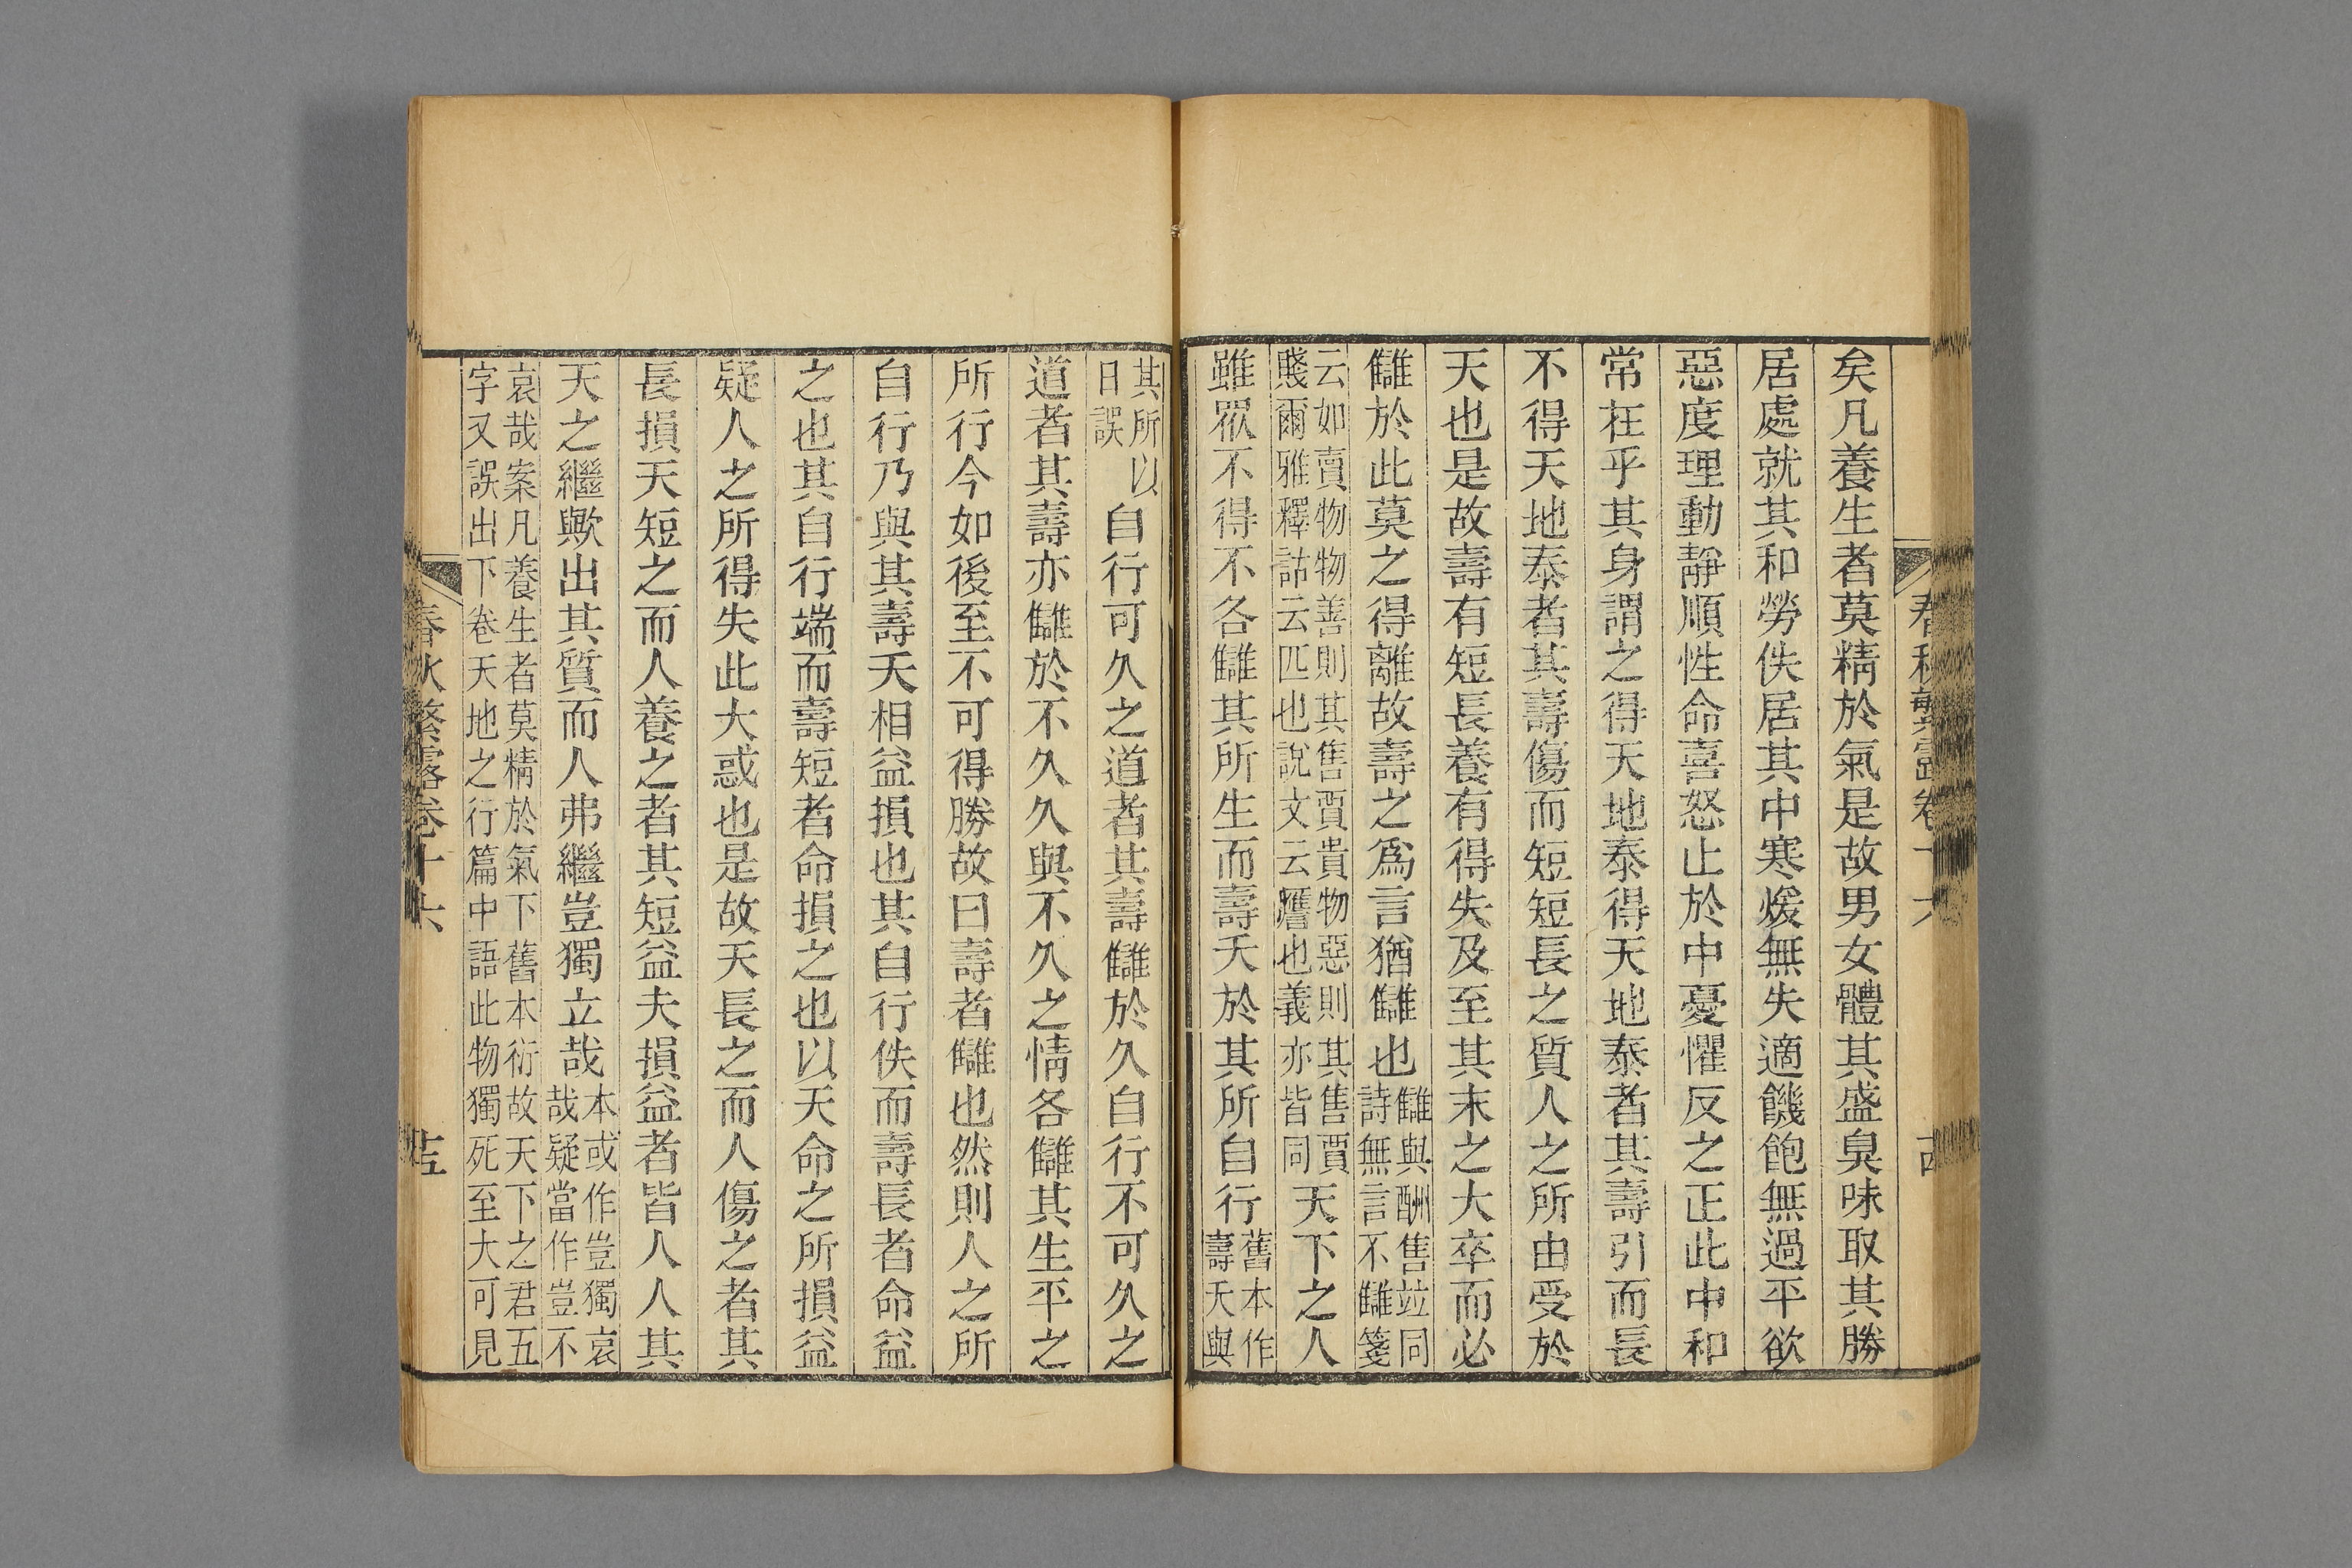 矣凡養生者莫精於氣是故男女體其盛臭味取其勝
居處就其和勞佚居其中寒煖無失適饑飽無過平欲
惡度理動靜順性命喜怒止於中憂懼反之正此中和
常在乎其身謂之得天地泰得天地泰者其壽引而長
不得天地泰者其壽傷而短短長之質人之所由受於
天也是故壽有短長養有得失及至其末之大卒而必
讎於此莫之得離故壽之爲言猶讎也讎與酬售竝同詩無言不讎箋
云如賣物物善則其售賈貴物惡則其售賈賤爾雅釋詁云匹也說文云譍也義亦皆同天下之人
雖眾不得不各讎其所生而壽夭於其所自行舊本作壽夭與
其所以日誤自行可久之道者其壽讎於久自行不可久之
道者其壽亦讎於不久久與不久之情各讎其生平之
所行今如後至不可得勝故曰壽者讎也然則人之所
自行乃與其壽夭相益損也其自行佚而壽長者命益
之也其自行端而壽短者命損之也以天命之所損益
疑人之所得失此大惑也是故天長之而人傷之者其
長損天短之而人養之者其短益夫損益者皆人人其
天之繼歟出其質而人弗繼豈獨立哉本或作豈獨哀哉疑當作豈不
哀哉案凡養生者莫精於氣下舊本衍故天下之君五字又誤出下卷天地之行篇中語此物獨死至大可見
春秋繁露卷十六